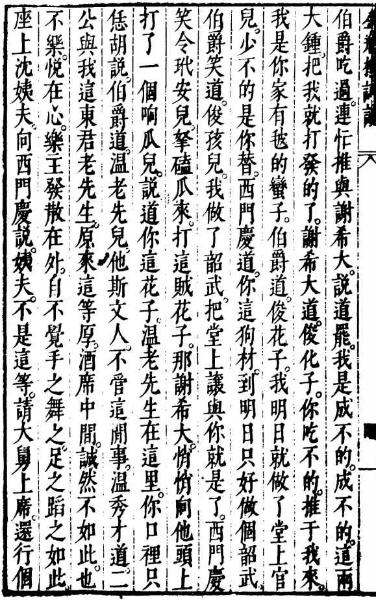 伯爵吃過連忙推與謝希大說道罷我是成不的成不的這兩
大鍾把我就打發的了謝希大道傻化子你吃不的推于我來
我是你家有毬的蠻子伯爵道傻花子我明日就做了堂上官
兒少不的是你替西門慶道你這狗材到明日只好做個韶武
伯爵笑道傻孩兒我做了韶武把堂上讓與你就是了西門慶
笑令玳安兒拏磕瓜來打這賊花子那謝希大悄悄向他頭上
打了一個响瓜兒說道你這花子溫老先生在這里你口裡只
恁胡說伯爵道溫老先兒他斯文人不管這閒事溫秀才道二
公與我這東君老先生原來這等厚酒席中間誠然不如此也
不樂悅在心樂主發散在外自不覺手之舞之足之蹈之如此
座上沈姨夫向西門慶說姨夫不是這等請大舅上席還行個